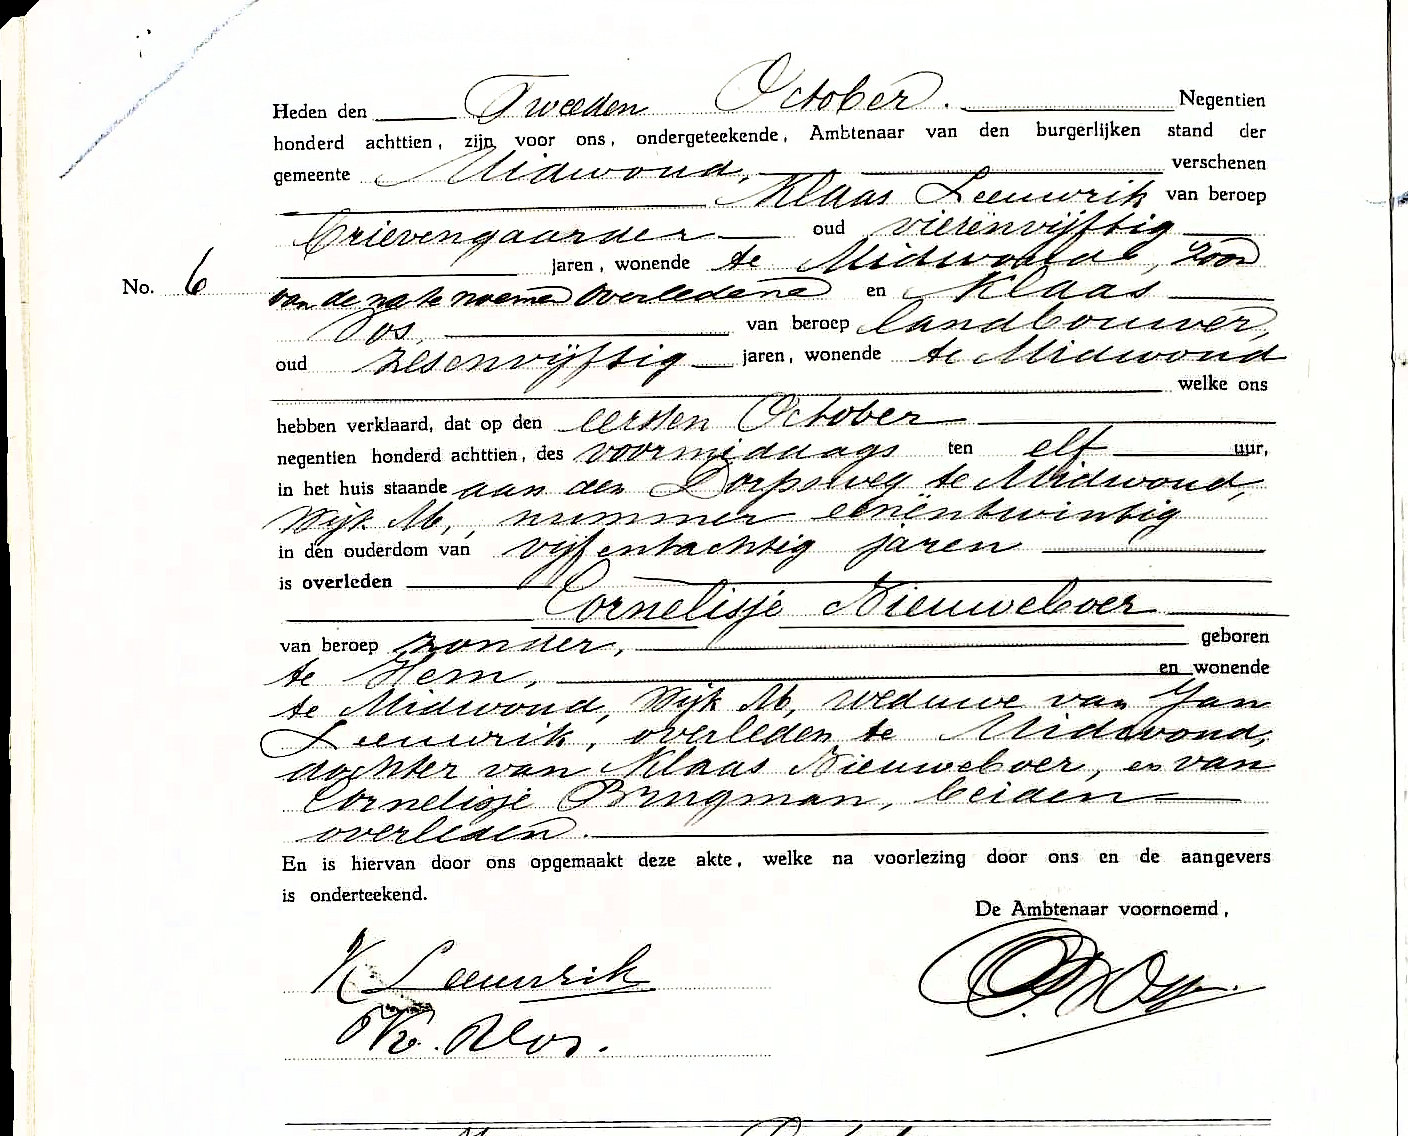 Heden den Tweeden October. Negentien
honderd achttien, zijn voor ons, ondergeteekende, Ambtenaar van den burgerlijken stand der
gemeente Midwoud, verschenen
Klaas Leeuwrik van beroep
brievengaarder oud vierenvijftig
jaren, wonende te Midwoud, zoon
No. 6 van de na te noemen overledene en Klaas
Vos, van beroep landbouwer,
oud zesenvijftig jaren, wonende te Midwoud
welke ons
hebben verklaard, dat op den eersten October
negentien honderd achttien, des voormiddags ten elf uur,
in het huis staande aan den Dorpsweg te Midwoud,
Wijk M, nummer eenëntwintig
in den ouderdom van vijfentachtig jaren
is overleden
Cornelisje Nieuweboer
van beroep zonder, geboren
te Hem, en wonende
te Midwoud, Wijk M, weduwe van Jan
Leeuwrik, overleden te Midwoud,
dochter van Klaas Nieuweboer, en van
Cornelisje Brugman, beiden
overleden.
En is hiervan door ons opgemaakt deze akte, welke na voorlezing door ons en de aangevers
is onderteekend.
De Ambtenaar voornoemd,
K Leeuwrik